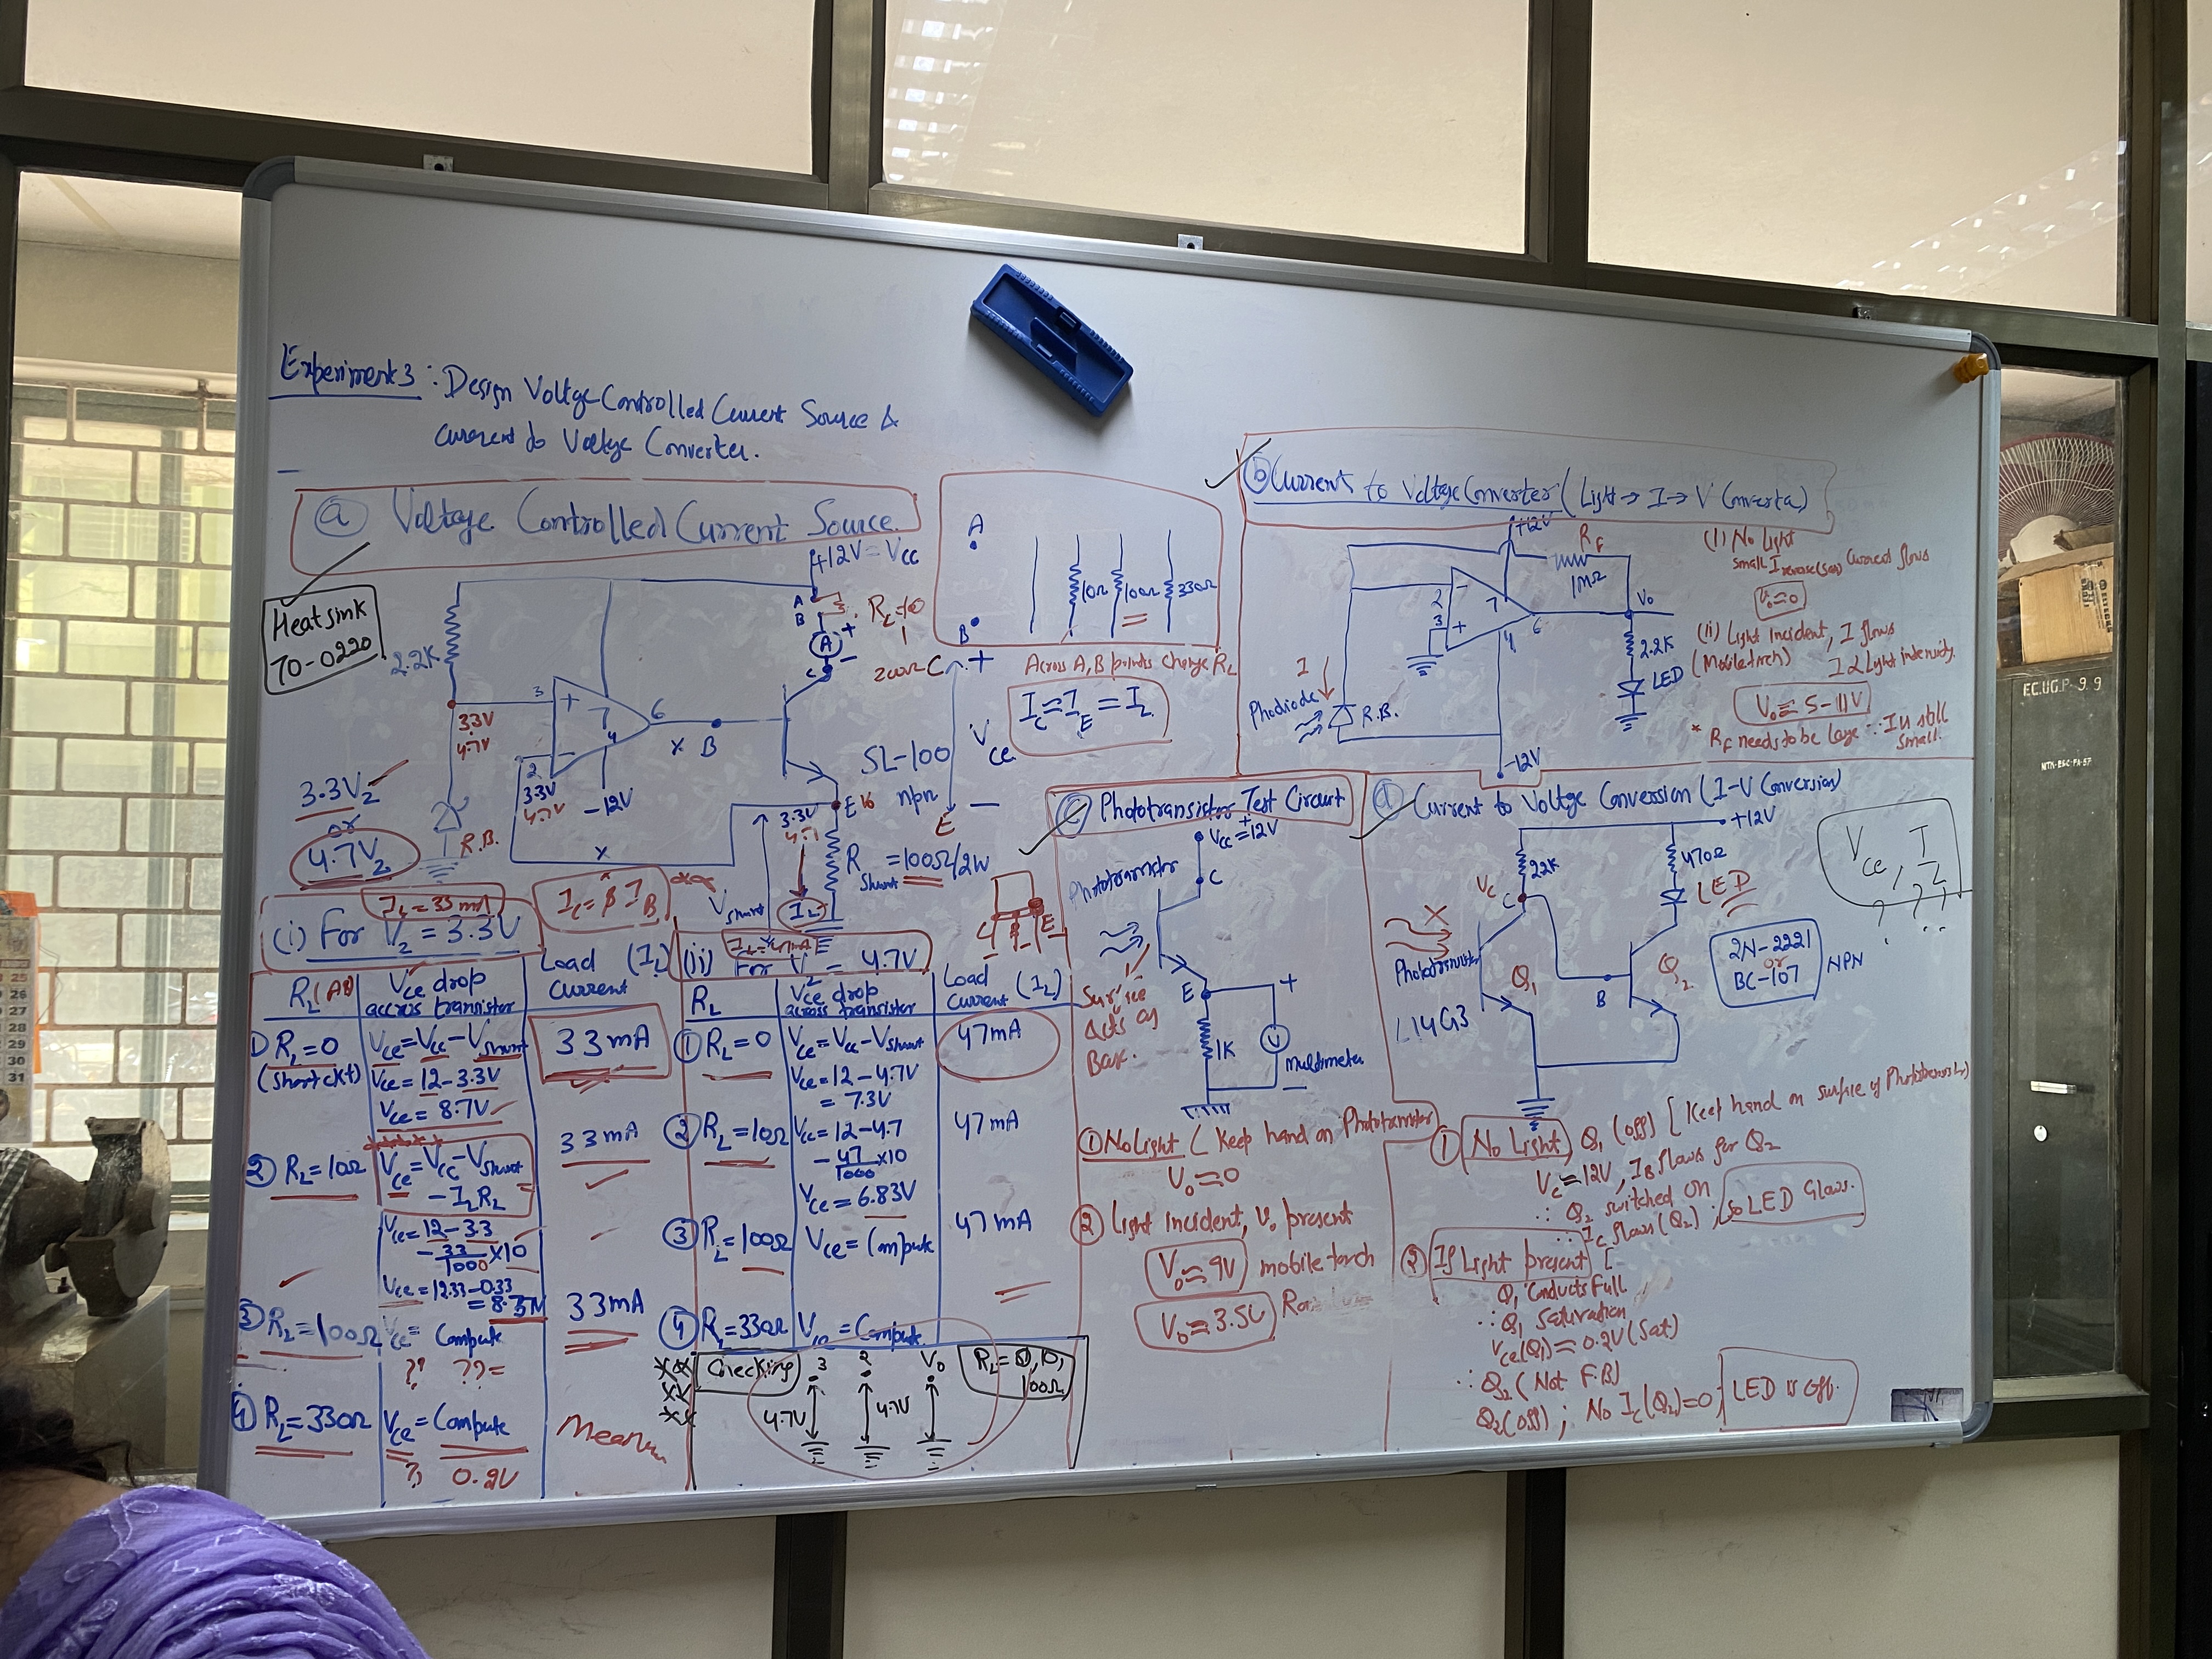 Experiment 3 : Design Voltge Controlled Current Source &
Current to Voltge Converter.
(a) Voltage Controlled Current Source.
Heat sink
TO-0220
+12V = Vcc
A
B
(A)
+
-
C
RL=10
2.2K
3.3V
4.7V
3
+
7
6
2
-
4
3.3V
4.7V
-12V
x B
x
3.3VZ
or
4.7VZ
R.B.
SL-100
npn
E
3.3V
4.7
Vshunt
IL
Rshunt = 100Ω/2W
C +
Vce
E -
A
B
10Ω
100Ω
330Ω
Across A, B points change RL
IC ≈ IE = IL
IC = β IB
(i) For VZ = 3.3V
RL (AB)
Vce drop
across transistor
Load (IL)
current
1) RL=0
(short ckt)
Vce=Vcc-Vshunt
Vce= 12-3.3V
Vce = 8.7V
33mA
(2) RL=10Ω
Vce=Vcc-Vshunt
-ILRL
Vce=12-3.3
-33/1000 x10
33mA
(3) RL=100Ω
Vce= Compute
?? ??=
33mA
(4) RL=330Ω
Vce= Compute
?
(ii) For VZ = 4.7V
RL
Vce drop
across transistor
Load
Current (IL)
(1) RL=0
Vce=Vcc-Vshunt
Vce=12-4.7V
= 7.3V
47mA
(2) RL=10Ω
Vce=12-4.7
-47/1000 x10
Vce = 6.83V
47mA
(3) RL=100Ω
Vce= Compute
47mA
(4) RL=330Ω
= Compute
Checking
3
2
Vo
4.7V
4.7V
RL=0,10,
100Ω
(b) Current to Voltge Converter (Light → I → V Converter)
+12V
RF
1MΩ
2
-
3
+
7
4
6
Vo
2.2K
LED
I
Photodiode
R.B.
-12V
(i) No Light
small Ireverse(sat) current flows
Vo≈0
(ii) Light Incident, I flows
(Mobile torch) I α Light intensity.
Vo ≅ 5-11V
* RF needs to be large ∵ I is still
small.
(c) Phototransistor Test Circuit
+
Vcc=12V
C
Phototransistor
E
Surface
acts as
Base.
1K
+
V
-
Multimeter
C
E
(1) No Light (Keep hand on Phototransistor
Vo≈0
(2) Light incident, Vo present
Vo≈9V mobile torch
Vo≈3.5V
(d) Current to Voltge Conversion (I-V Conversion)
+12V
22K
470Ω
LED
Vc
C
X
Phototransistor
Q1
L14G3
B
Q2
2N-2221
or
BC-107
NPN
Vce, IL
? ? ?
(1) No Light, Q1 (off) [Keep hand on surface of Phototransistor]
Vc≈12V, IB flows for Q2
∴ Q2 switched on
∴ IC flows (Q2) ; So LED Glows.
(2) If Light present [
Q1 Conducts Full
∴ Q1 Saturation
Vce(Q1)≈0.2V (Sat)
∴ Q2 (Not F.B)
Q2 (off) ; No IC(Q2)=0, LED is off.
EC.UG.P-9.9
25
26
27
28
29
30
31